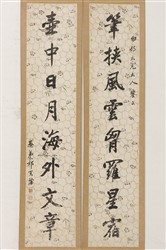 筆挾風雲胷羅星宿
壺中日月海外文章